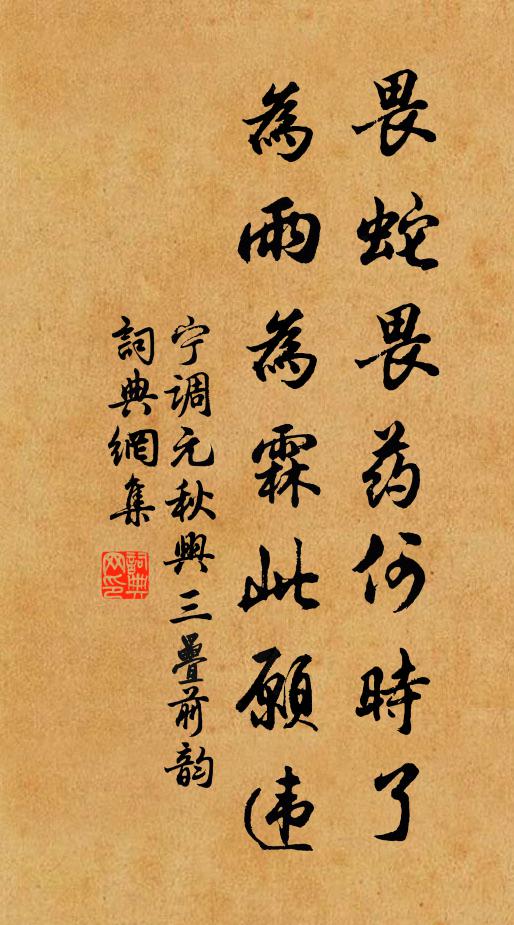 畏蛇畏药何時了
為雨為霖此願违
宁调元秋興三疊前韵
詞典網集
詞典网印